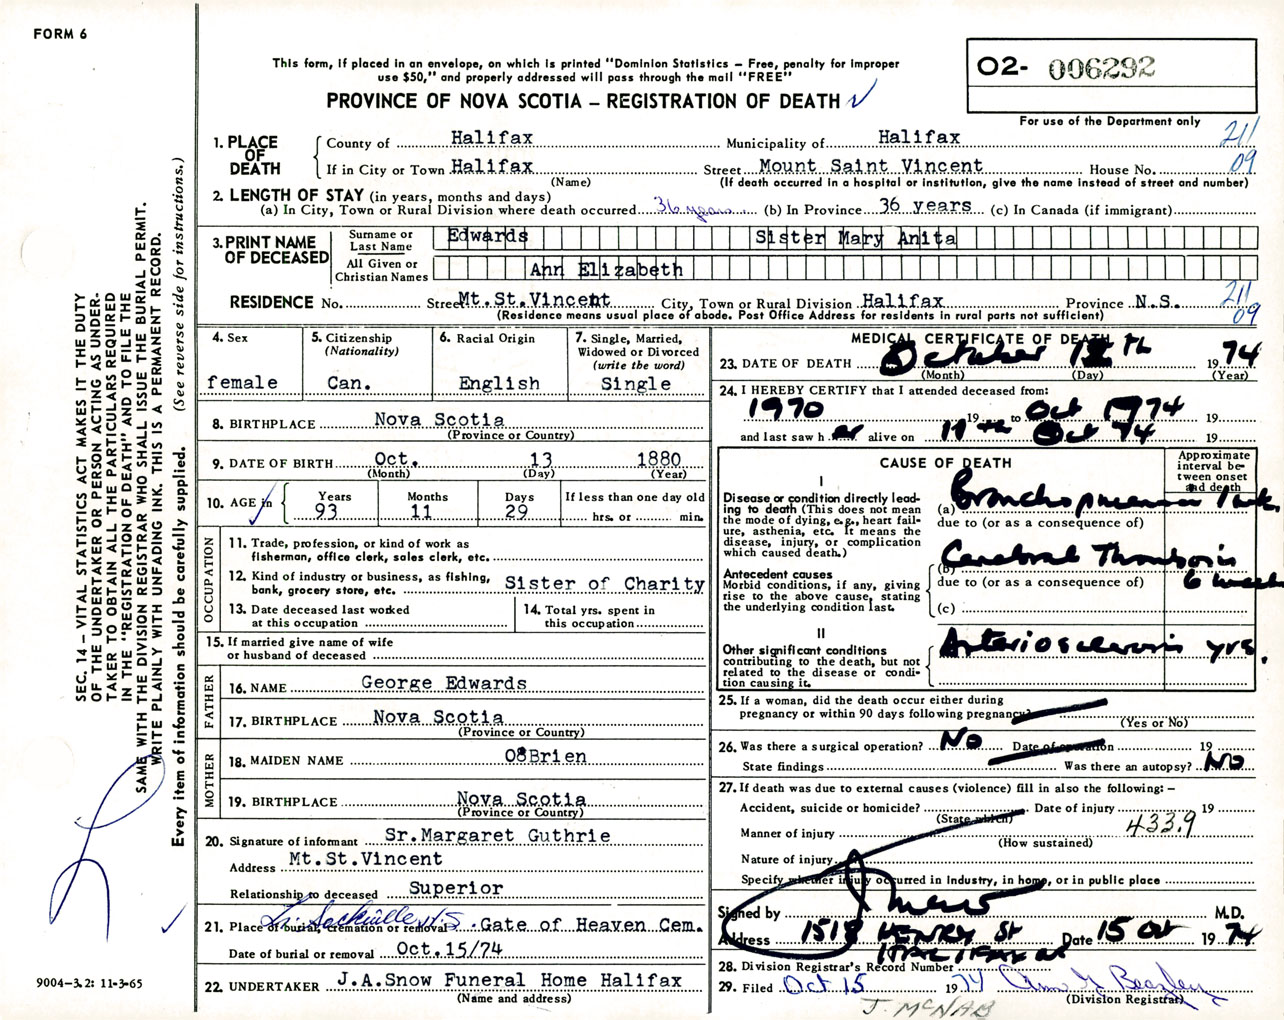 FORM 6
This form, if placed in an envelope, on which is printed "Dominion Statistics – Free, penalty for improper
use $50," and properly addressed will pass through the mail "FREE"
PROVINCE OF NOVA SCOTIA – REGISTRATION OF DEATH
02- 006292
For use of the Department only
211
09
SEC. 14 – VITAL STATISTICS ACT MAKES IT THE DUTY
OF THE UNDERTAKER OR PERSON ACTING AS UNDER-
TAKER TO OBTAIN ALL THE PARTICULARS REQUIRED
IN THE "REGISTRATION OF DEATH" AND TO FILE THE
SAME WITH THE DIVISION REGISTRAR WHO SHALL ISSUE THE BURIAL PERMIT.
WRITE PLAINLY WITH UNFADING INK. THIS IS A PERMANENT RECORD.
Every item of information should be carefully supplied. (See reverse side for instructions.)
1. PLACE OF DEATH
County of Halifax Municipality of Halifax
If in City or Town Halifax Street Mount Saint Vincent House No.
(Name) (If death occurred in a hospital or institution, give the name instead of street and number)
2. LENGTH OF STAY (in years, months and days)
(a) In City, Town or Rural Division where death occurred 36 years (b) In Province 36 years (c) In Canada (if immigrant)
3. PRINT NAME OF DECEASED
Surname or Last Name Edwards Sister Mary Anita
All Given or Christian Names Ann Elizabeth
RESIDENCE No. Street Mt.St.Vincent City, Town or Rural Division Halifax Province N.S.
(Residence means usual place of abode. Post Office Address for residents in rural parts not sufficient)
211
09
4. Sex
female
5. Citizenship
(Nationality)
Can.
6. Racial Origin
English
7. Single, Married,
Widowed or Divorced
(write the word)
Single
8. BIRTHPLACE Nova Scotia
(Province or Country)
9. DATE OF BIRTH Oct. 13 1880
(Month) (Day) (Year)
10. AGE in
Years 93
Months 11
Days 29
If less than one day old
hrs. or min.
OCCUPATION
11. Trade, profession, or kind of work as
fisherman, office clerk, sales clerk, etc.
12. Kind of industry or business, as fishing,
bank, grocery store, etc. Sister of Charity
13. Date deceased last worked
at this occupation
14. Total yrs. spent in
this occupation
15. If married give name of wife
or husband of deceased
FATHER
16. NAME George Edwards
17. BIRTHPLACE Nova Scotia
(Province or Country)
MOTHER
18. MAIDEN NAME O'Brien
19. BIRTHPLACE Nova Scotia
(Province or Country)
20. Signature of informant Sr.Margaret Guthrie
Address Mt.St.Vincent
Relationship to deceased Superior
21. Place of burial, cremation or removal Sackville N.S. Gate of Heaven Cem.
Date of burial or removal Oct.15/74
22. UNDERTAKER J.A.Snow Funeral Home Halifax
(Name and address)
MEDICAL CERTIFICATE OF DEATH
23. DATE OF DEATH October 12th 1974
(Month) (Day) (Year)
24. I HEREBY CERTIFY that I attended deceased from:
1970 19 to Oct 1974 19
and last saw her alive on 11th Oct 74 19
CAUSE OF DEATH
Approximate
interval be-
tween onset
and death
I
Disease or condition directly lead-
ing to death (This does not
mean the mode of dying, e.g., heart fail-
ure, asthenia, etc. It means the
disease, injury, or complication
which caused death.)
(a) Bronchopneumonia 1 wk.
due to (or as a consequence of)
Antecedent causes
Morbid conditions, if any, giving
rise to the above cause, stating
the underlying condition last.
(b) Cerebral Thrombosis 6 weeks
due to (or as a consequence of)
(c)
II
Other significant conditions
contributing to the death, but not
related to the disease or condi-
tion causing it.
Arteriosclerosis yrs.
25. If a woman, did the death occur either during
pregnancy or within 90 days following pregnancy?
(Yes or No)
26. Was there a surgical operation? No Date of operation 19
State findings Was there an autopsy? No
27. If death was due to external causes (violence) fill in also the following: –
Accident, suicide or homicide? Date of injury 19
(State which)
433.9
Manner of injury
(How sustained)
Nature of injury
Specify whether injury occurred in Industry, in home, or in public place
Signed by M.D.
Address 1518 HENRY St Date 15 Oct 1974
HALIFAX
28. Division Registrar's Record Number
29. Filed Oct 15 1974
(Division Registrar)
J. McNAB
9004–3.2: 11-3-65